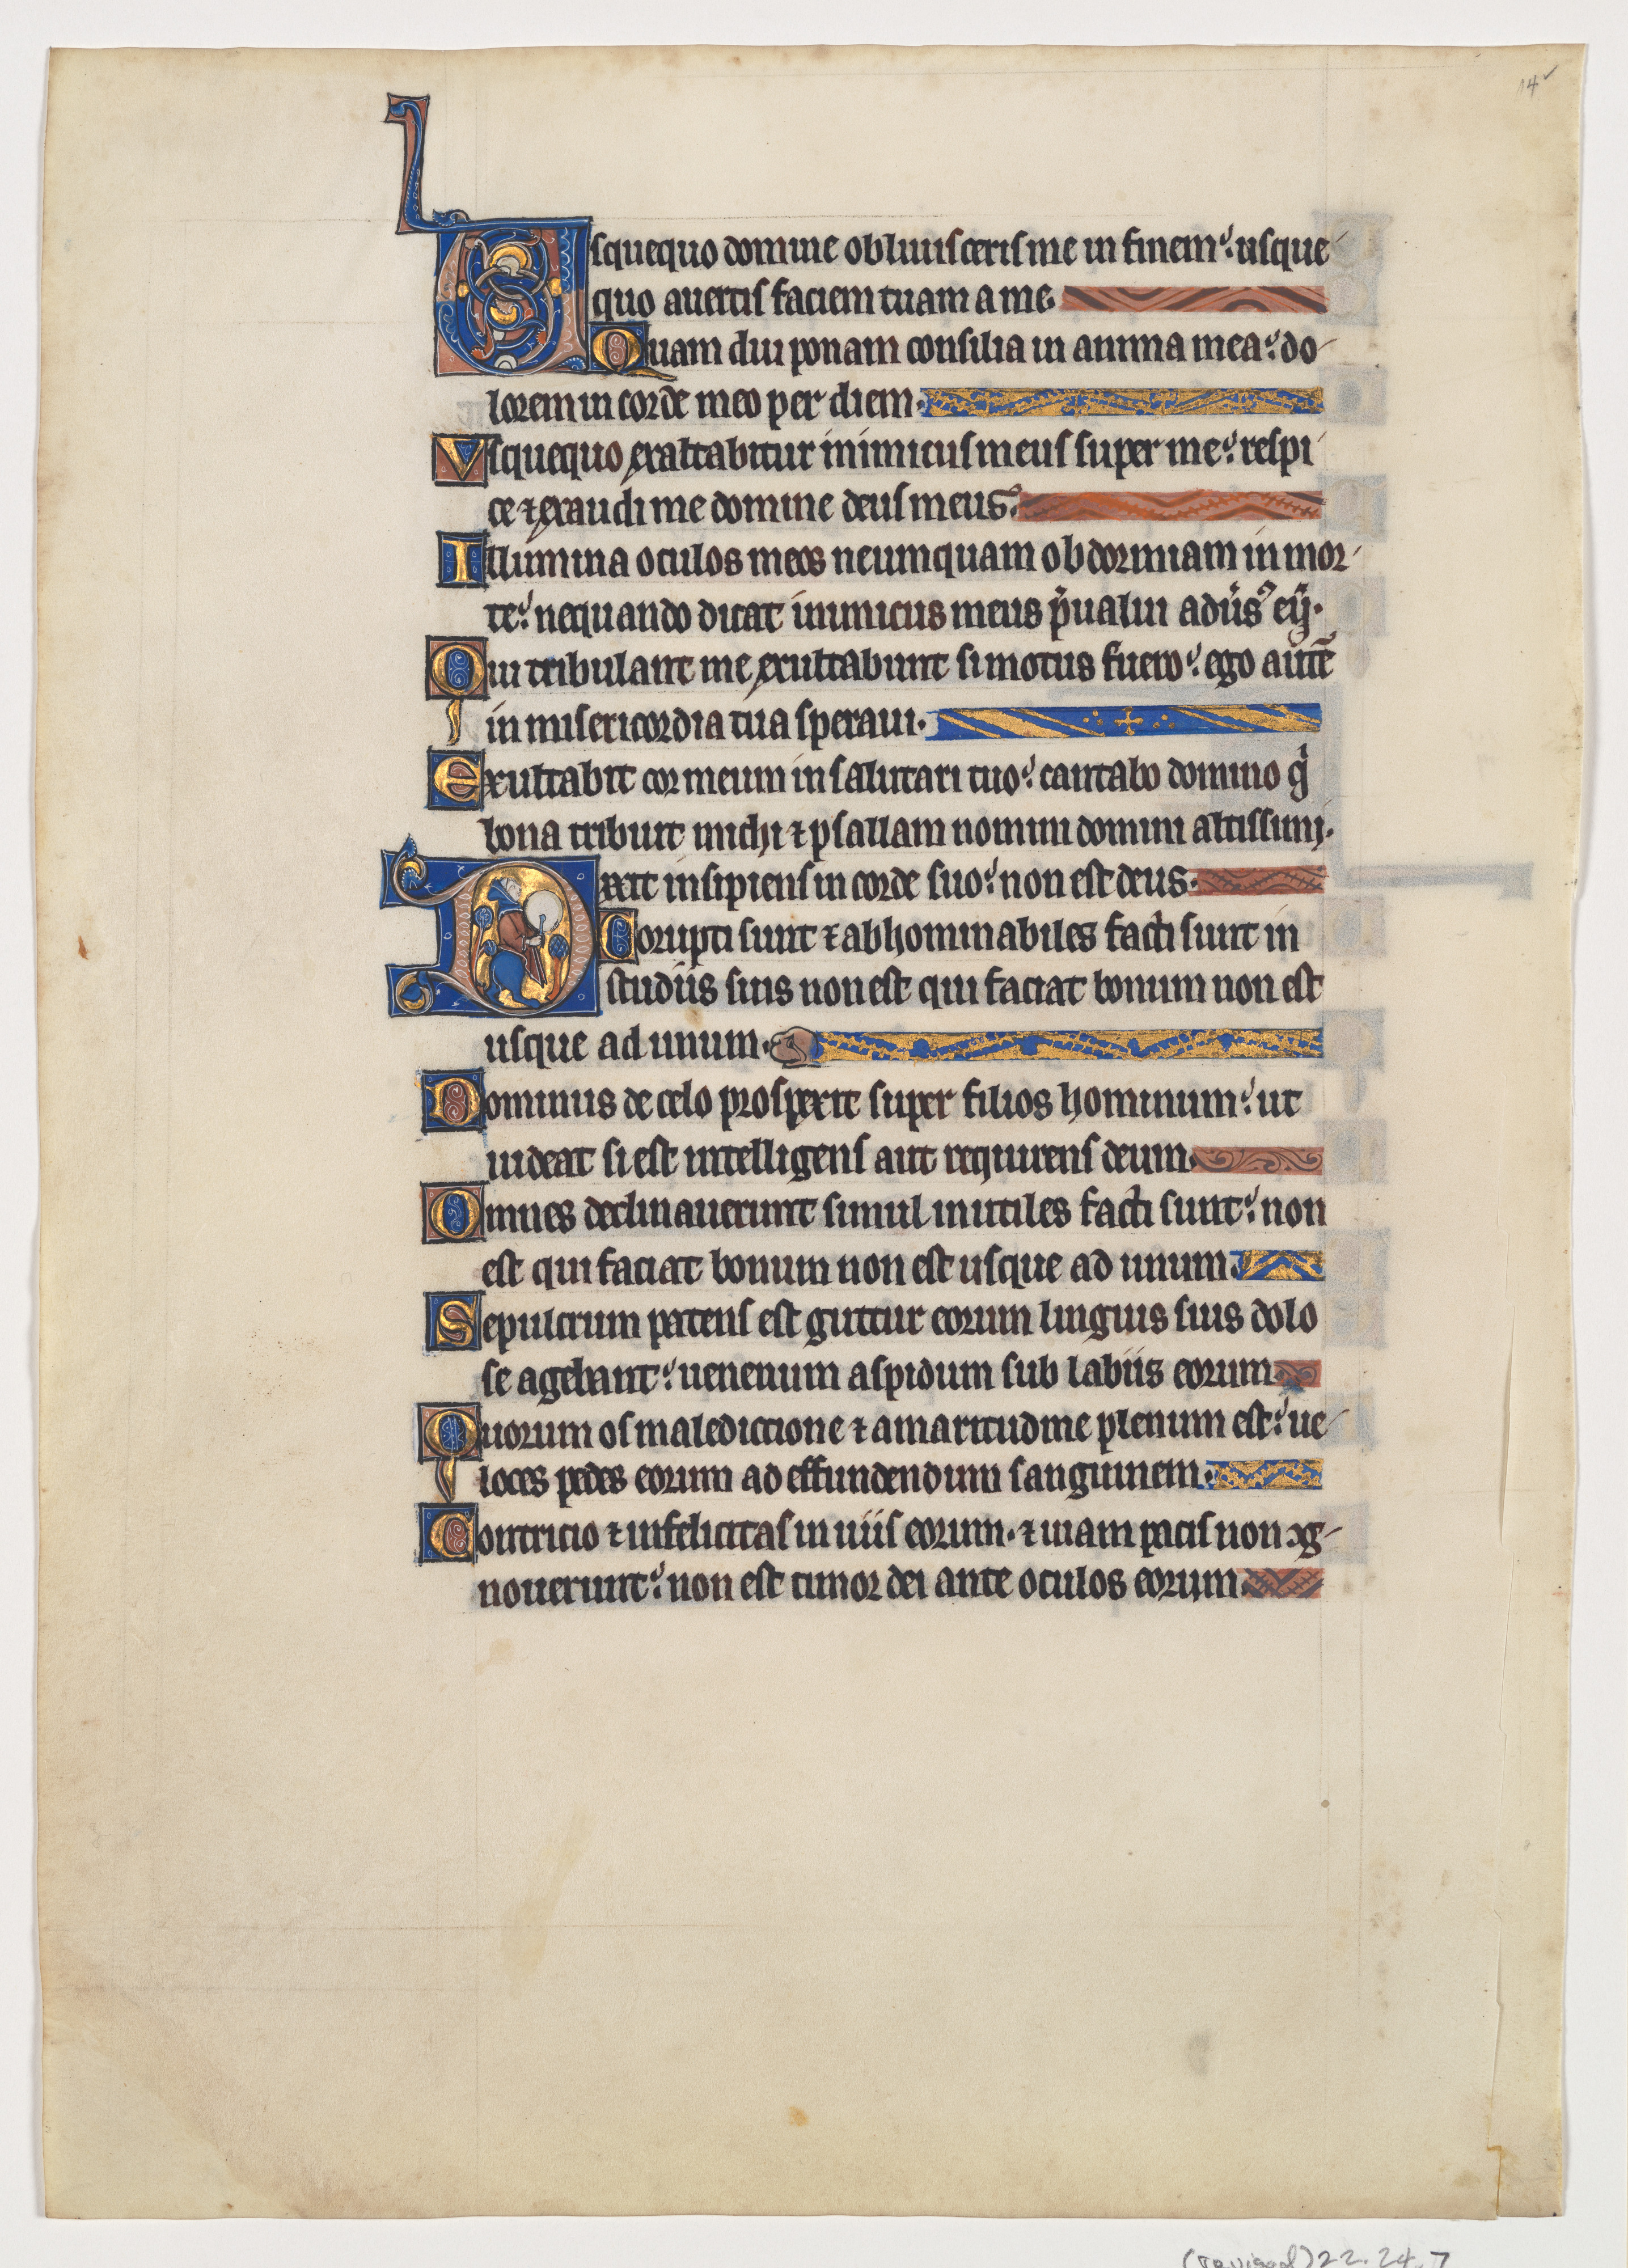 14
Usquequo domine obliuisceris me in finem? usque
quo auertis faciem tuam a me.
Quam diu ponam consilia in anima mea? do
lorem in corde meo per diem.
Vsquequo exaltabitur inimicus meus super me? respi
ce ⁊ exaudi me domine deus meus.
Illumina oculos meos ne umquam obdormiam in mor
te? nequando dicat inimicus meus p̄ualui adũsꝰ eū.
Qui tribulant me exultabunt si motus fuero? ego aūtē
in misericordia tua speraui.
Exultabit cor meum in salutari tuo? cantabo domino qͥ
bona tribuit michi ⁊ psallam nomini domini altissimi.
Dixit insipiens in corde suo? non est deus.
Corupti sunt ⁊ abhominabiles facti sunt in
studiis suis non est qui faciat bonum non est
usque ad unum.
Dominus de celo prospexit super filios hominum? ut
uideat si est intelligens aut requirens deum.
Omnes declinauerunt simul inutiles facti sunt? non
est qui faciat bonum non est usque ad unum.
Sepulcrum patens est guttur eorum linguis suis dolo
se agebant? uenenum aspidum sub labiis eorum.
Quorum os maledictione ⁊ amaritudine plenum est? ue
loces pedes eorum ad effundendum sanguinem.
Contricio ⁊ infelicitas in uiis eorum. ⁊ uiam pacis non cog
nouerunt? non est timor dei ante oculos eorum.
(revised) 22.24.7